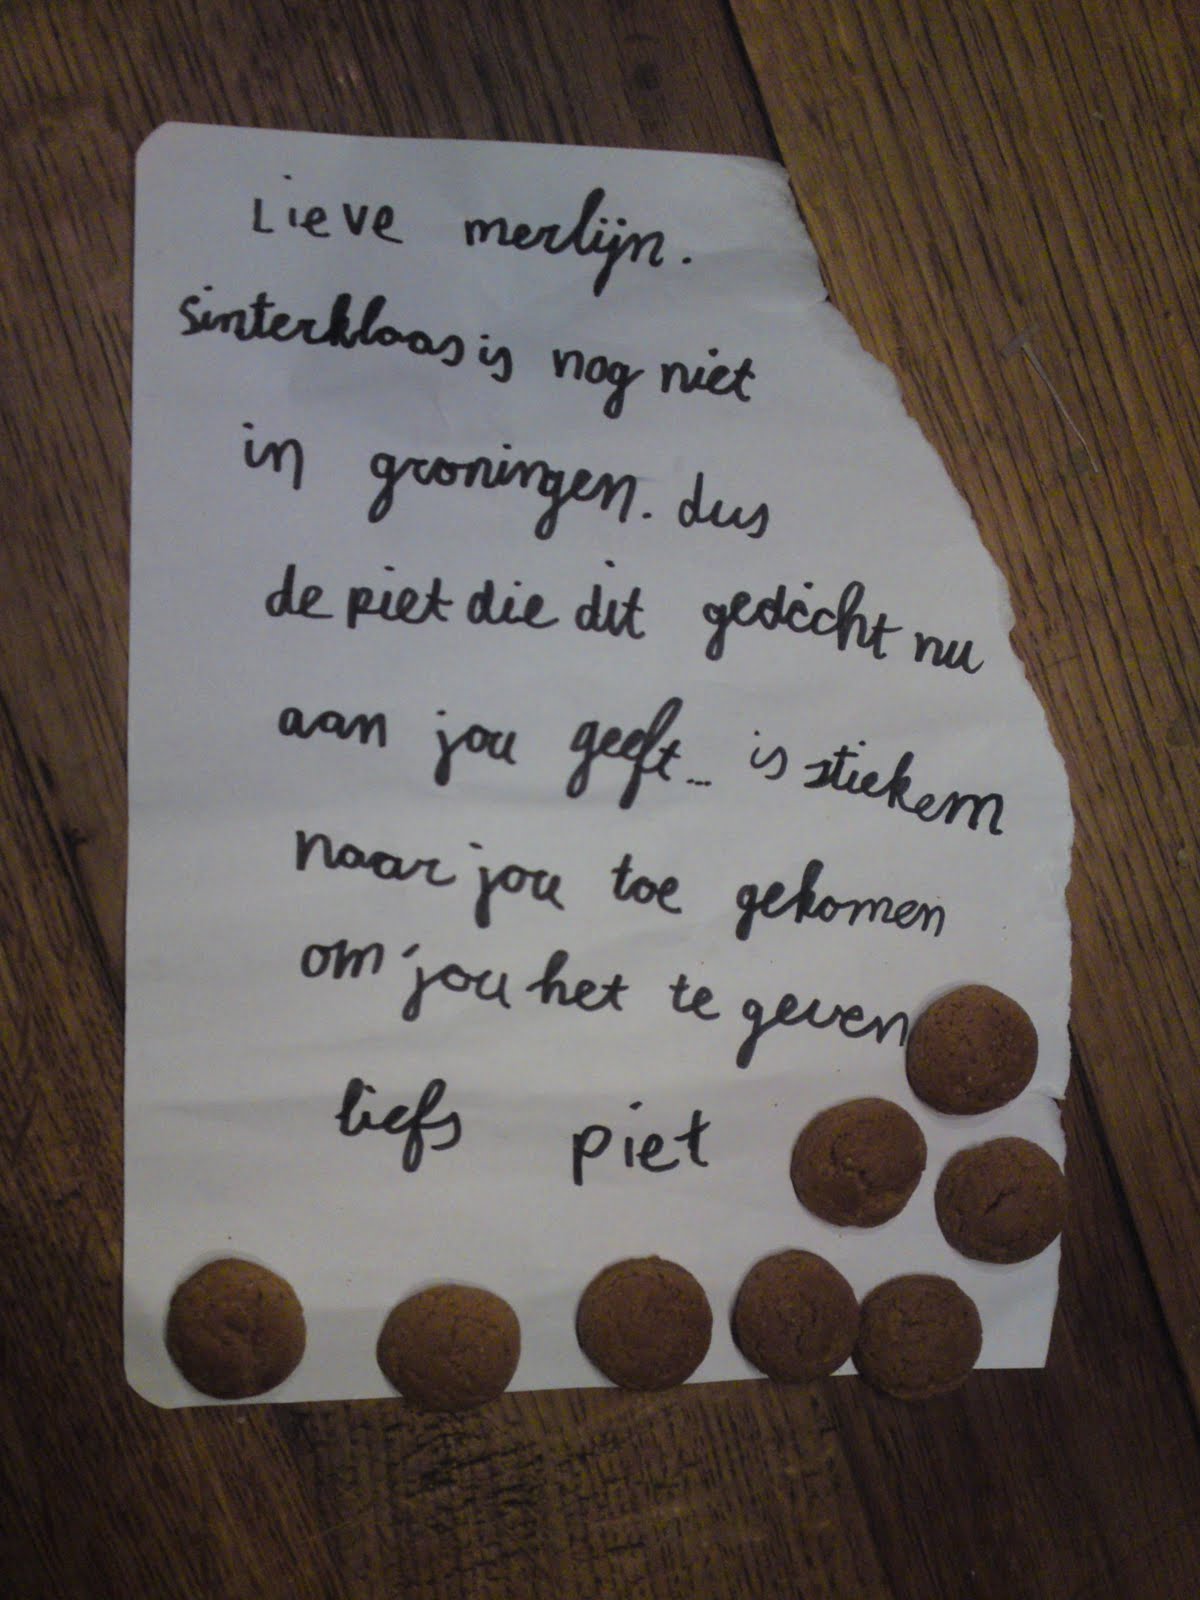 Lieve merlijn.
Sinterklaas is nog niet
in groningen. dus
de piet die dit gedicht nu
aan jou geeft... is stiekem
naar jou toe gekomen
om jou het te geven
liefs piet